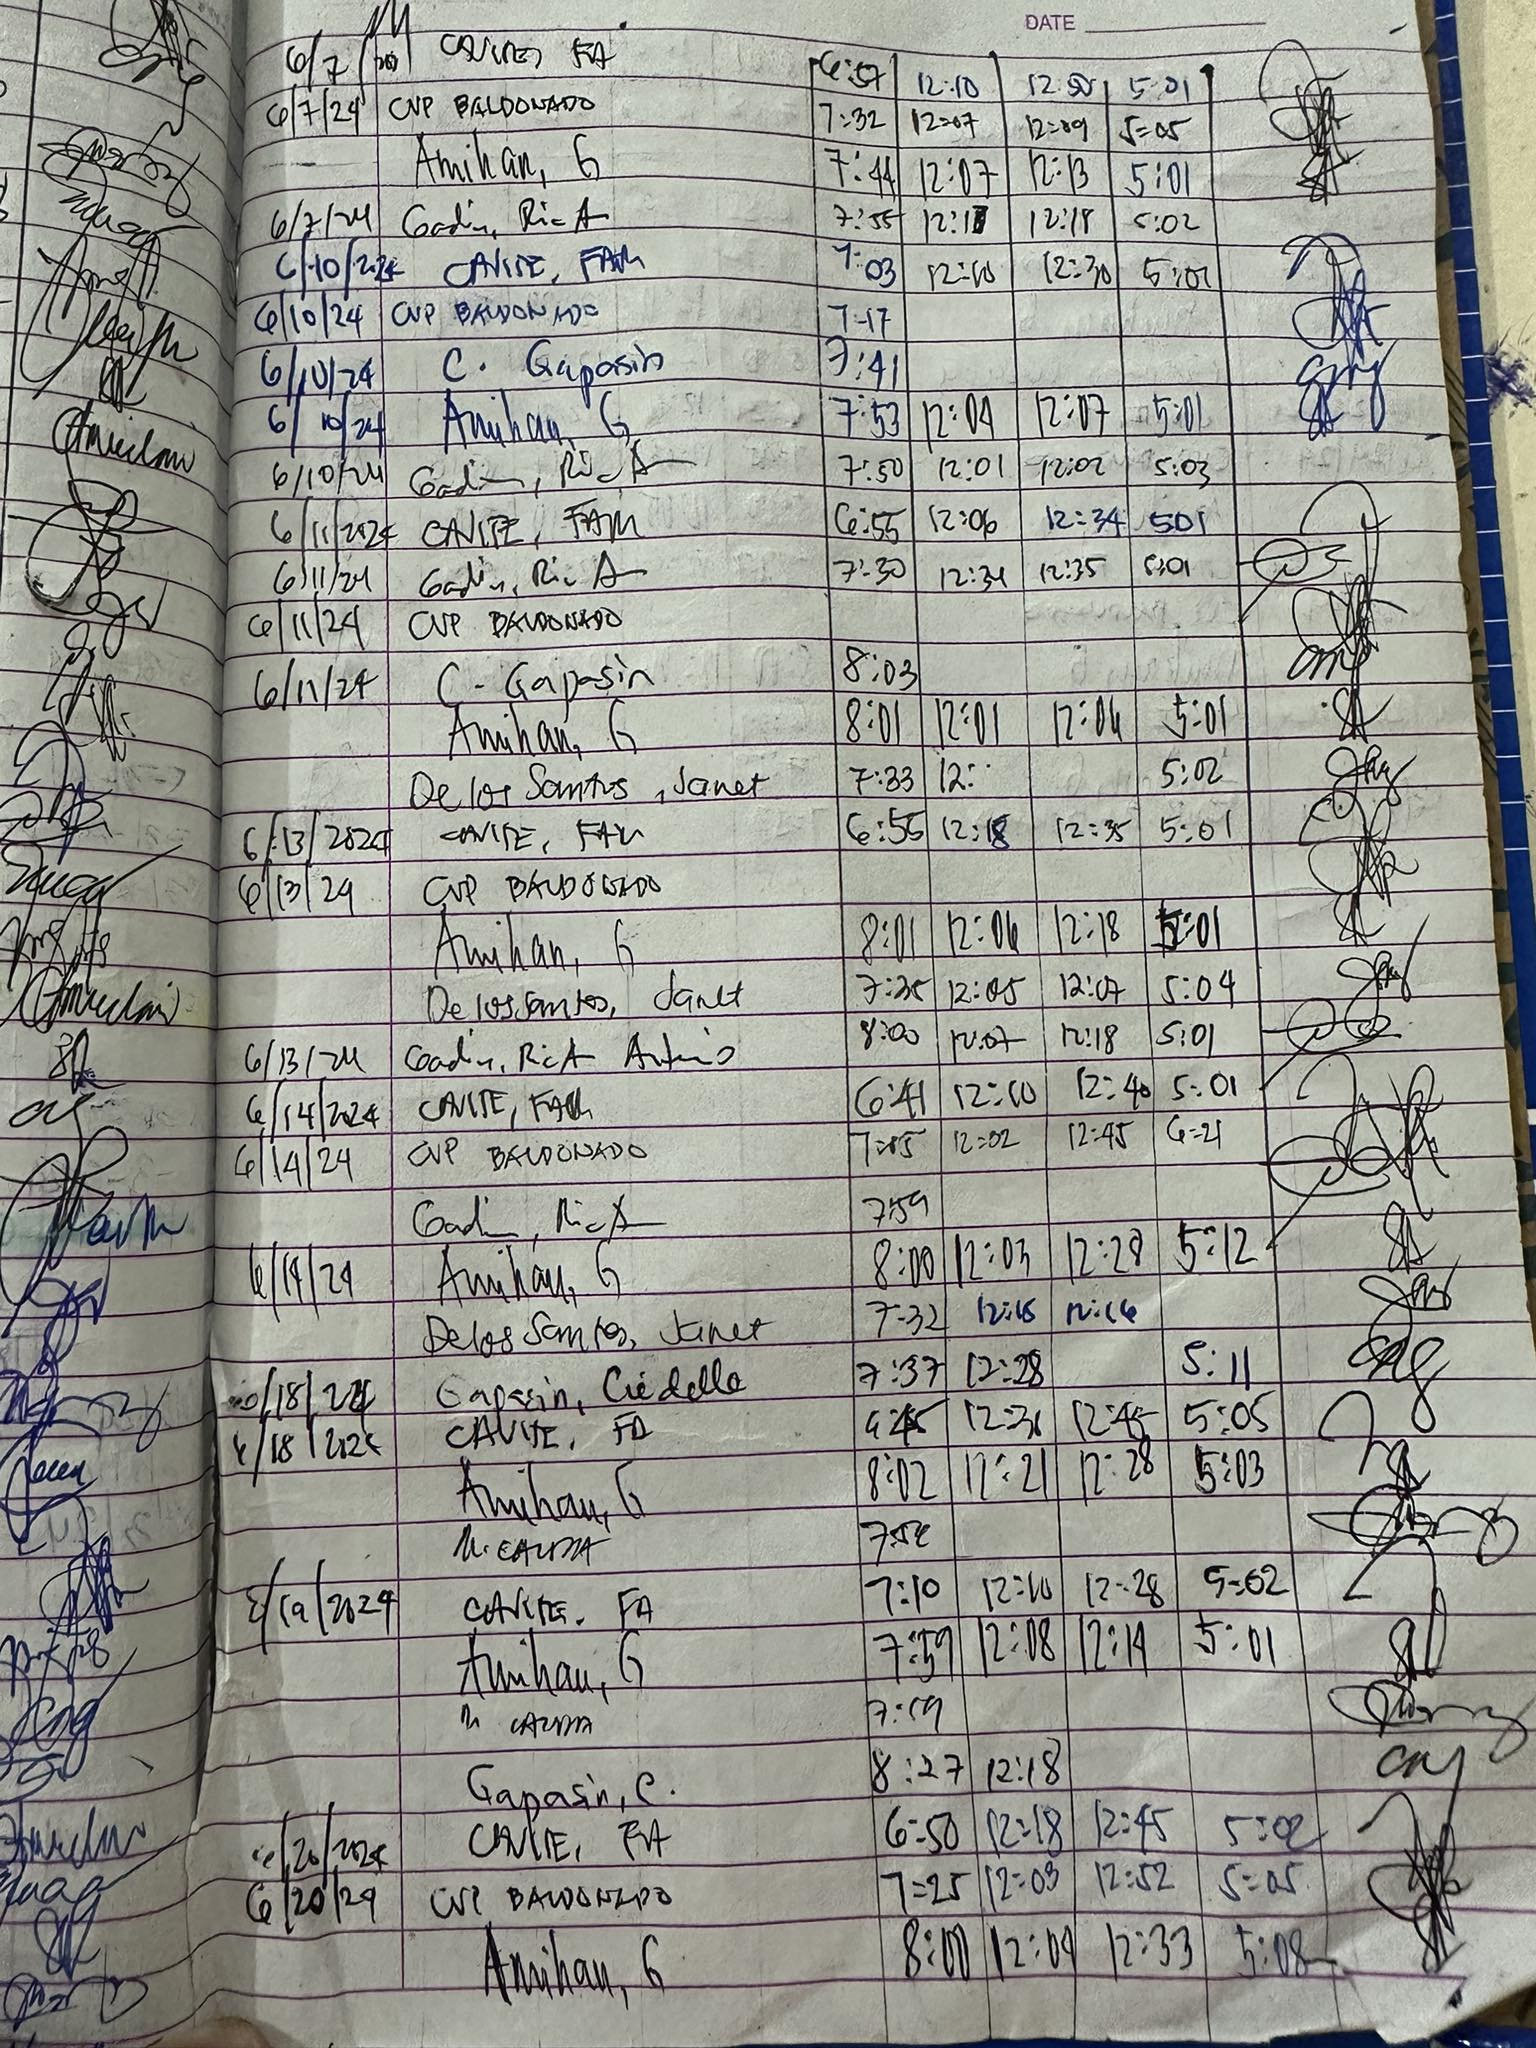 DATE
6/7/ CAVITE, FA 6:57 12:10 12:50 5:01
6/7/24 CVP BALDONADO 7:32 12:07 12:09 5:05
Amihan, G 7:44 12:07 12:13 5:01
6/7/24 Gadin, Ric A 7:55 12:17 12:18 5:02
6/10/2024 CAVITE, FAM 7:03 12:10 12:30 5:01
6/10/24 CVP BALDONADO 7:17
6/10/24 C. Gapasin 7:41
6/10/24 Amihan, G 7:53 12:04 12:07 5:01
6/10/24 Gadin, Ric A 7:50 12:01 12:02 5:03
6/11/2024 CAVITE, FAM 6:55 12:06 12:34 501
6/11/24 Gadin, Ric A 7:30 12:34 12:35 5:01
6/11/24 CVP BALDONADO
6/11/24 C. Gapasin 8:03
Amihan, G 8:01 12:01 12:06 5:01
De los Santos, Janet 7:33 12: 5:02
6/13/2024 CAVITE, FAM 6:55 12:18 12:35 5:01
6/13/24 CVP BALDONADO
Amihan, G 8:01 12:06 12:18 5:01
De los Santos, Janet 7:35 12:05 12:07 5:04
6/13/24 Gadin, Ric A Antonio 8:00 12:07 12:18 5:01
6/14/2024 CAVITE, FAM 6:41 12:10 12:40 5:01
6/14/24 CVP BALDONADO 7:05 12:02 12:45 6:21
Gadin, Ric A 7:59
6/14/24 Amihan, G 8:00 12:03 12:28 5:12
De los Santos, Janet 7:32 12:15 12:16
/18/24 Gapasin, Criedelle 7:37 12:28 5:11
6/18/2024 CAVITE, FA 6:45 12:31 12:45 5:05
Amihan, G 8:02 12:21 12:28 5:03
7:52
/19/2024 CAVITE, FA 7:10 12:10 12:28 5:02
Amihan, G 7:59 12:08 12:14 5:01
7:59
Gapasin, C. 8:27 12:18
6/20/2024 CAVITE, FA 6:50 12:18 12:45 5:02
6/20/24 CVP BALDONADO 7:25 12:03 12:52 5:05
Amihan, G 8:00 12:04 12:33 5:08